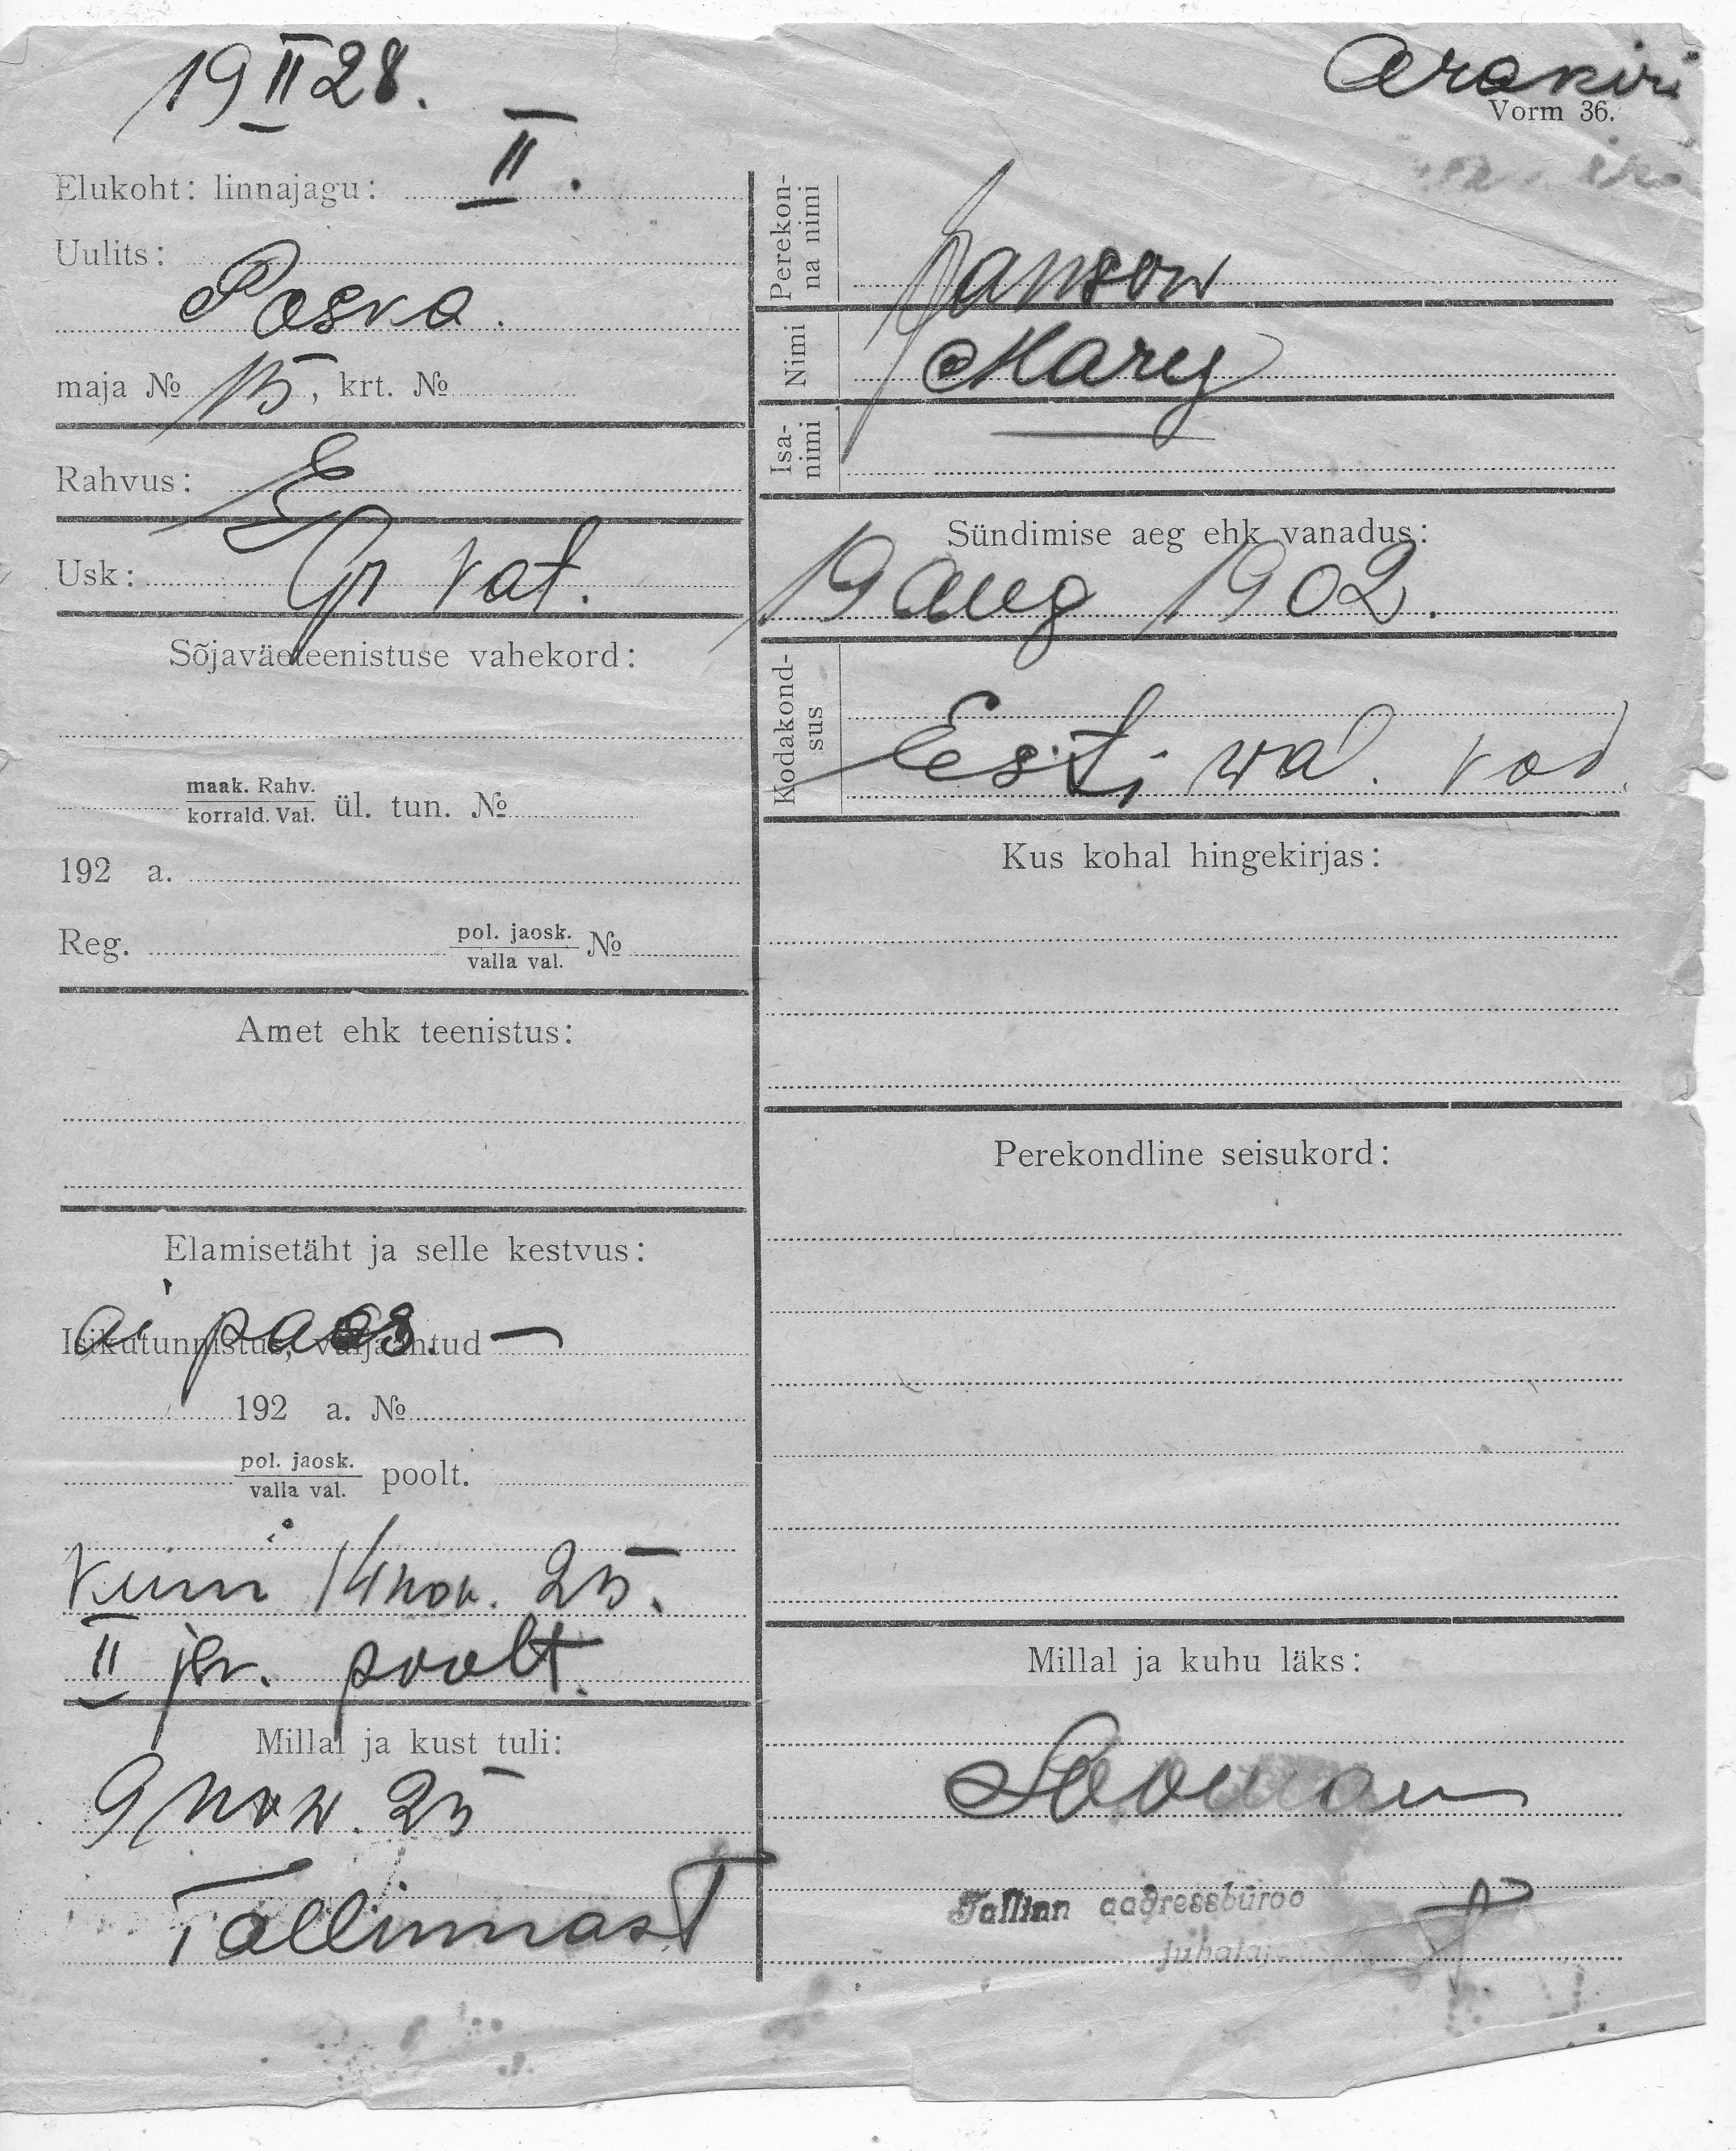 19 II 28.
Ärakiri
Vorm 36.
Elukoht: linnajagu: II.
Uulits:
Poska.
maja № 15, krt. №
Rahvus: E
Usk: Gr kat.
Sõjaväeteenistuse vahekord:
maak. Rahv.
korrald. Val. ül. tun. №
192 a.
Reg. pol. jaosk.
valla val. №
Amet ehk teenistus:
Elamisetäht ja selle kestvus:
Isikutunnistus, väljaantud
aj pass. —
192 a. №
pol. jaosk.
valla val. poolt.
kuni 14 nov. 25.
II jsk. poolt.
Millal ja kust tuli:
9 nov. 25
Tallinnast
Perekon-
na nimi
Janson
Nimi
Mary
Isa-
nimi
Sündimise aeg ehk vanadus:
19 aug 1902.
Kodakond-
sus
Eesti wa. kod.
Kus kohal hingekirjas:
Perekondline seisukord:
Millal ja kuhu läks:
Tallinn aadressbüroo
juhataja